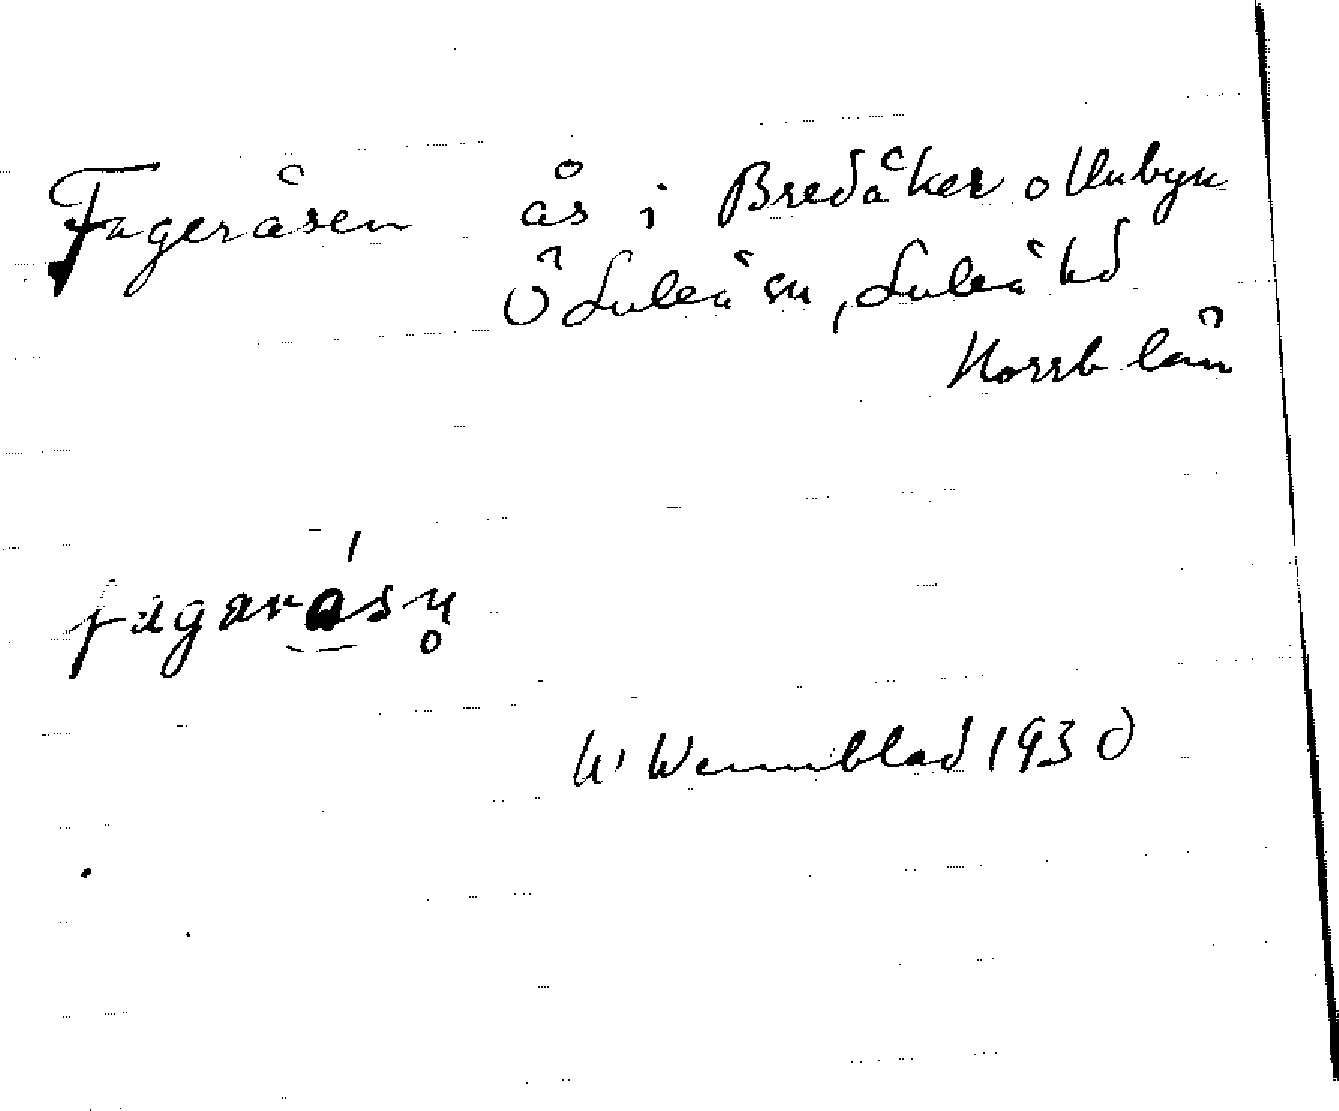 Fageråsen ås i Bredåker o Unbyn
Ö Luleå sn, Luleå hd
Norrb län
fagaråsn̥
W Wennblad 1930